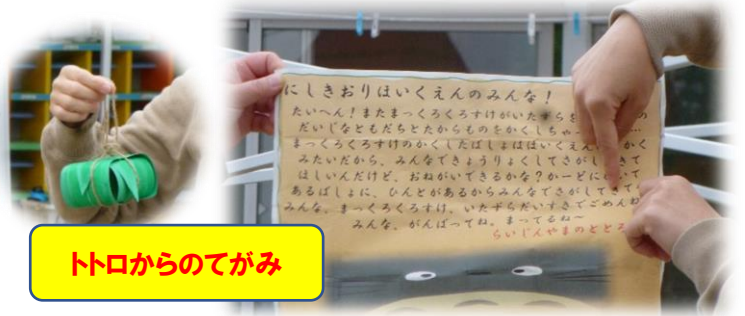 にしきおりほいくえんのみんな！
たいへん！またまっくろくろすけがいたずらを の
だいじなともだちとたからものをかくしちゃっ…
まっくろくろすけのかくしたばしょはほいくえん かく
みたいだから、みんなできょうりょくしてさがし きて
ほしいんだけど、おねがいできるかな？かーどに いて
あるばしょに、ひんとがあるからみんなでさがしてきて
みんな、まっくろくろすけ、いたずらだいすきでごめんね
みんな、がんばってね。まってるね〜
らいじんやまのととろ
トトロからのてがみ